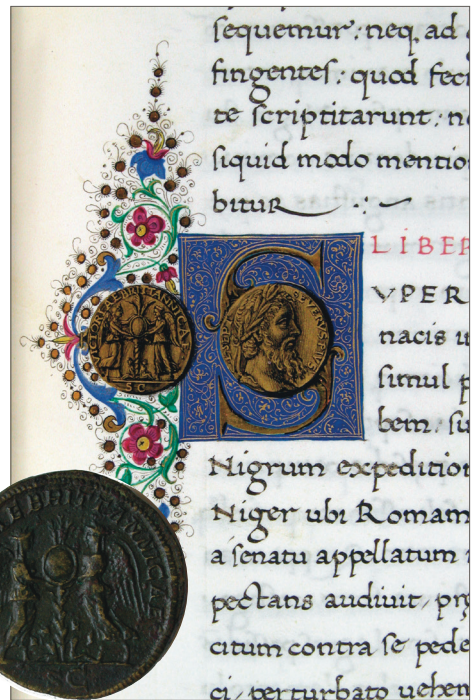 ſequemur: neq, ad
fingenteſ: quod feci
te ſcriptitarunt: n
ſiquid modo mentio
bitur
LIBER
S
VPER
nacis u
ſimul p
bem. ſu
Nigrum expedition
Niger ubi Romam
a ſenatu appellatum
pectans audiuit, prę
citum contra ſe pede
ci, perturbato uehem
SC
SC